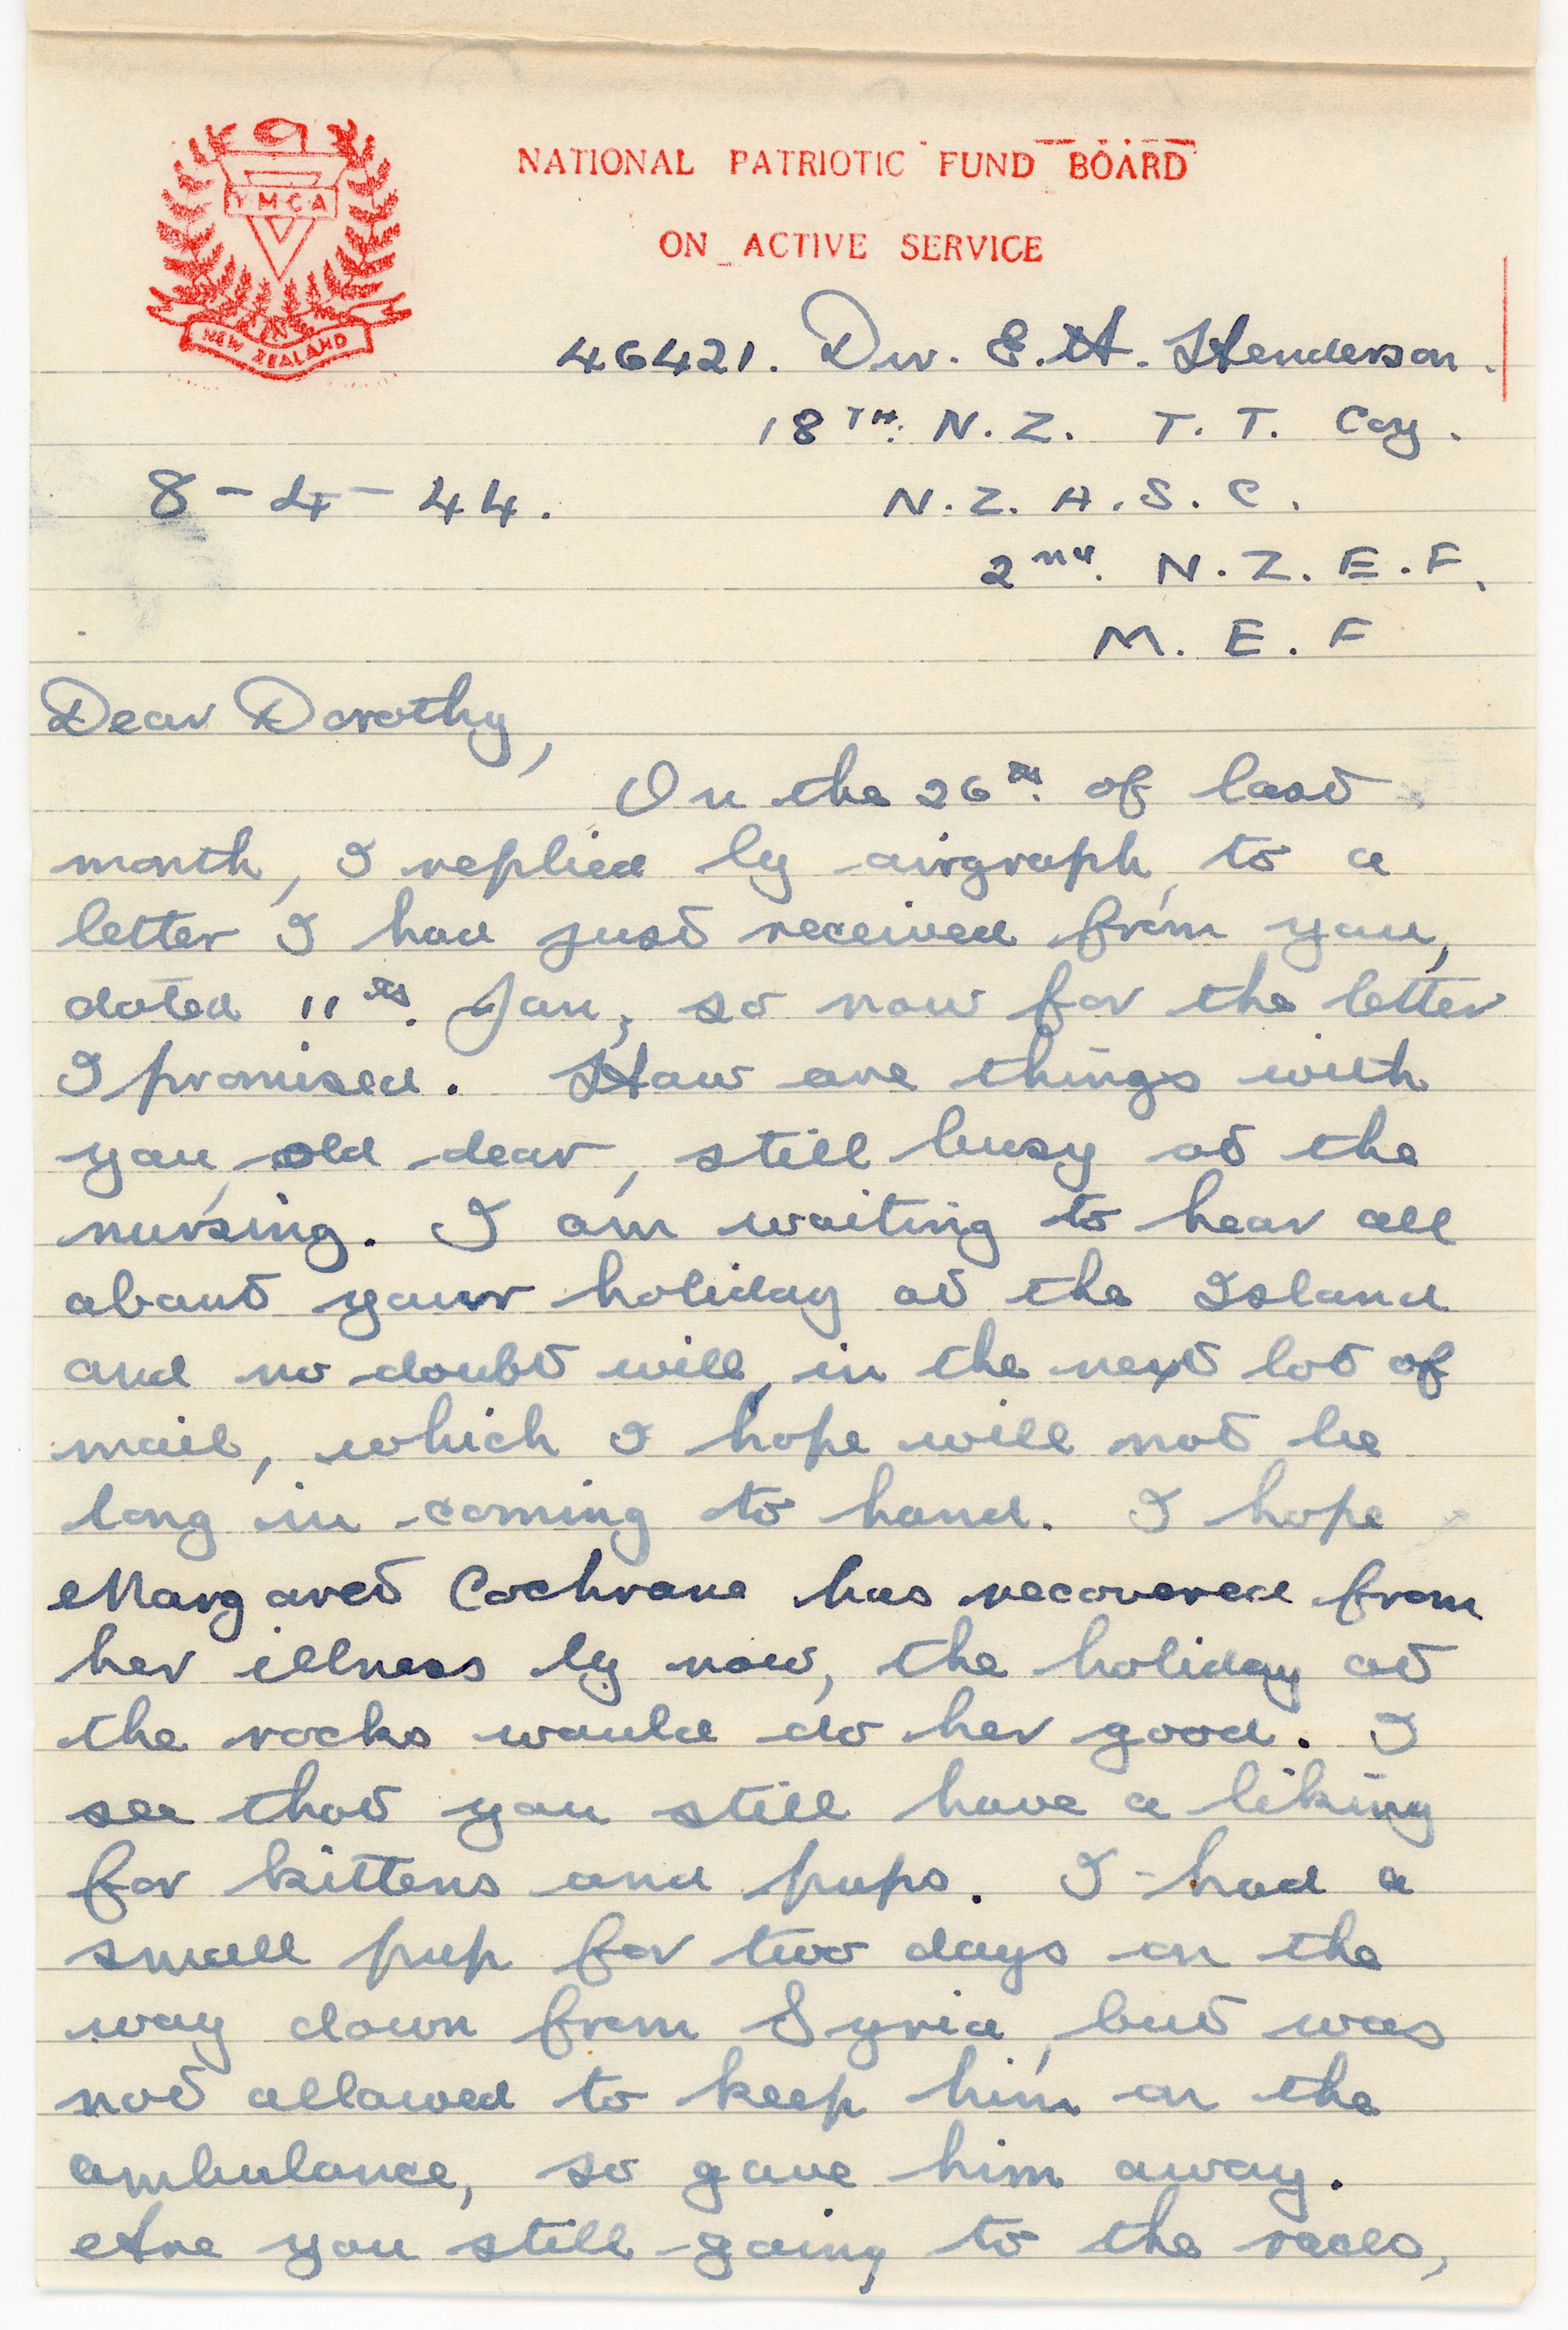 YMCA
NEW ZEALAND
NATIONAL PATRIOTIC FUND BOARD
ON ACTIVE SERVICE
46421. Dvr. E.H. Henderson.
18TH. N.Z. T.T. Coy.
8-4-44.
N.Z.A.S.C.
2nd. N.Z.E.F.
M.E.F
Dear Dorothy,
On the 26th. of last
month, I replied by airgraph, to a
letter I had just received from you,
dated 11th. Jan, so now for the letter
I promised. How are things with
you, old dear, still busy at the
nursing. I am waiting to hear all
about your holiday at the Island
and no doubt will, in the next lot of
mail, which I hope will not be
long in coming to hand. I hope
Margaret Cochrane has recovered from
her illness by now, the holiday at
the rocks would do her good. I
see that you still have a liking
for kittens and pups. I had a
small pup for two days on the
way down from Syria, but was
not allowed to keep him on the
ambulance, so gave him away.
Are you still going to the races,